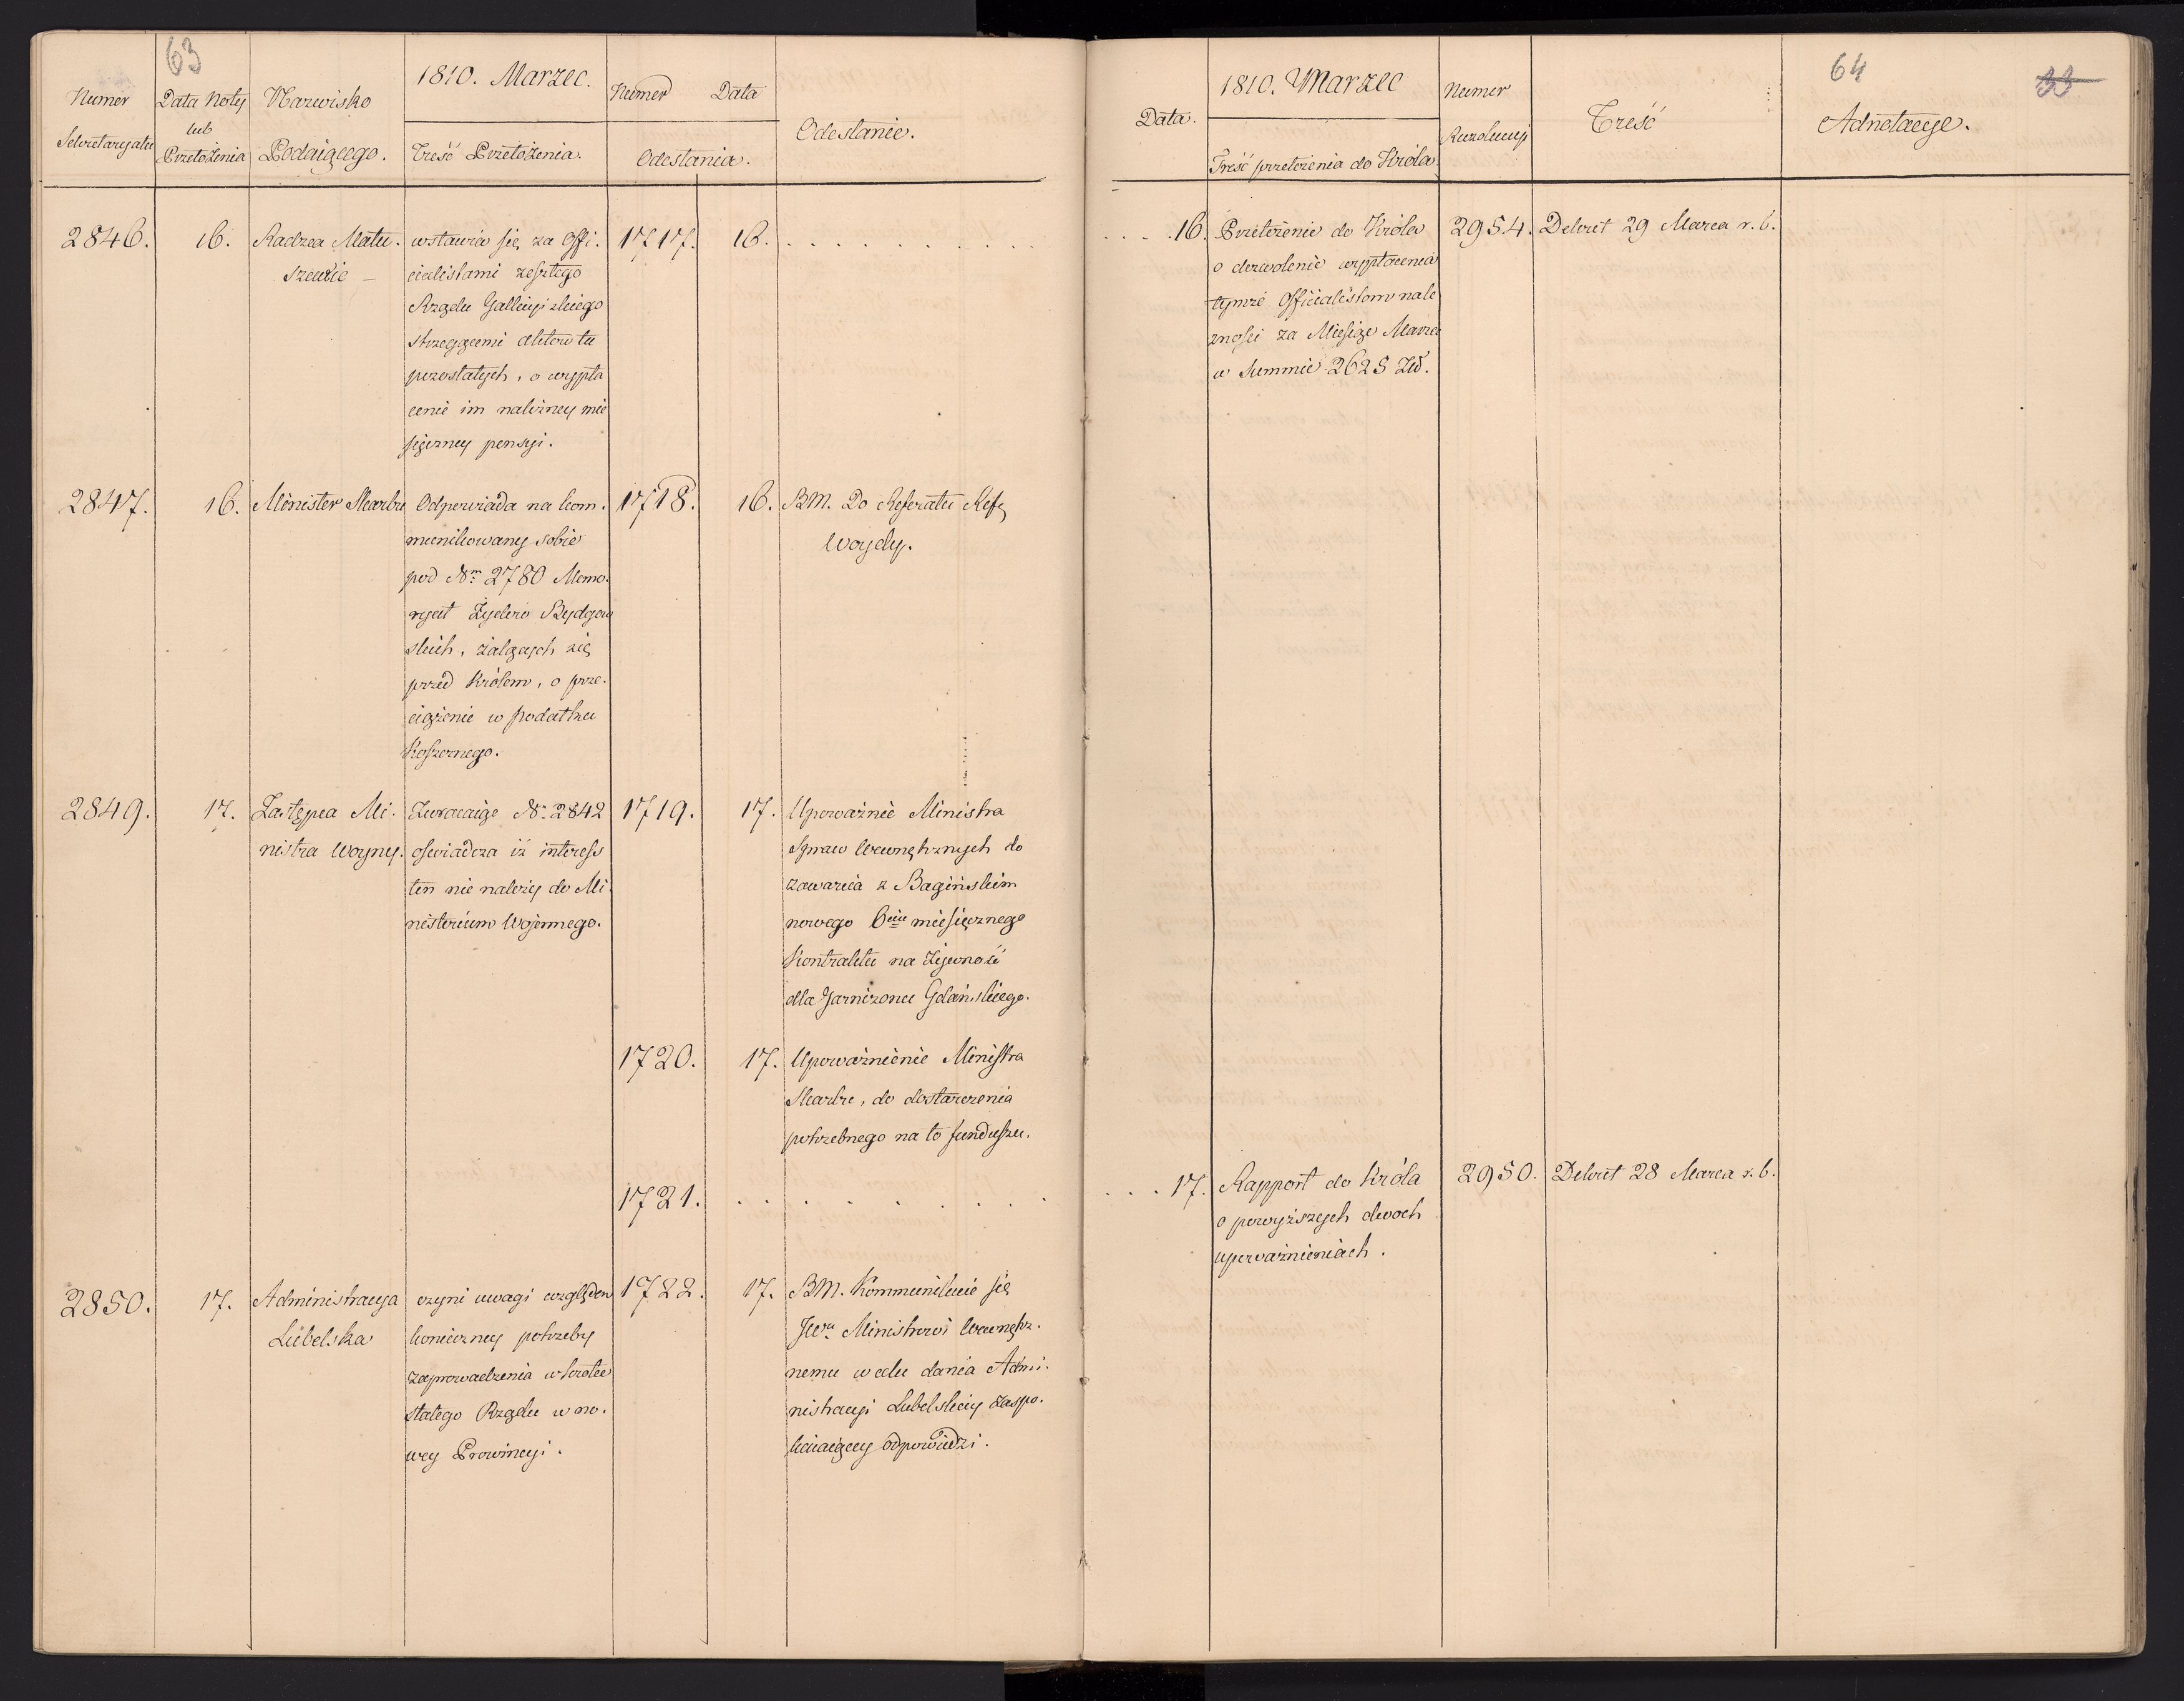 63
Numer
Sekretaryatu
Data Noty
lub
Przełożenia
Nazwisko
Podaiącego.
1810. Marzec.
Treść Przełożenia.
Numer Data
Odesłania.
Odesłanie.
2846.
16.
Radzca Matu-
szewic –
wstawia się za Offi-
cialistami zeszłego
Rządu Gallicyiskiego
strzegącemi aktow tu
pozostałych, o wypła
cenie im należney mie
sięczney pensyi.
1717.
16.
2847.
16.
Minister Skarbu
Odpowiada na kom-
munikowany sobie
pod Nrm 2780 Memo-
ryał Żydow Bydgow
skich, żalących się
przed Królem, o prze-
ciążenie w podatku
Koszernego.
1718.
16.
BM. Do Referatu Refę
Woydy.
2849.
17.
Zastępca Mi-
nistra Woyny.
Zwracaiąc Nr 2842
oświadcza iż interess
ten nie należy do Mi
nisterium Wojennego.
1719.
17.
Upoważnie Ministra
Spraw Wewnętrznych do
zawarcia z Bagińskim
nowego 6ciu miesięcznego
Kontraktu na Żywność
dla Garnizonu Gdańskiego.
1720.
17.
Upoważnienie Ministra
Skarbu, do dostarczenia
potrzebnego na to funduszu.
1721.
2850.
17.
Administracya
Lubelska
czyni uwagi względem
konieczney potrzeby
zaprowadzenia wkrotce
stałego Rządu w no-
wey Prowincyi.
1722.
17.
BM. Kommunikuie się
JWu Ministrowi Wewnętrz-
nemu w celu dania Admi-
nistracyi Lubelskiey zaspo-
kaiaiącey odpowiedzi.
64
33
Data.
1810. Marzec
Treść przełożenia do Króla
Numer
Rezolucyi
Treść
Adnotacye.
16.
Przełożenie do Króla
o dozwolenie wypłacenia
tymże Officialistom nale
żności za Miesiąc Marzec
w Summie 2625 Zł.
2954.
Dekret 29 Marca r. b.
17.
Rapport do Króla
o powyższych dwoch
upoważnieniach.
2950.
Dekret 28 Marca r. b.